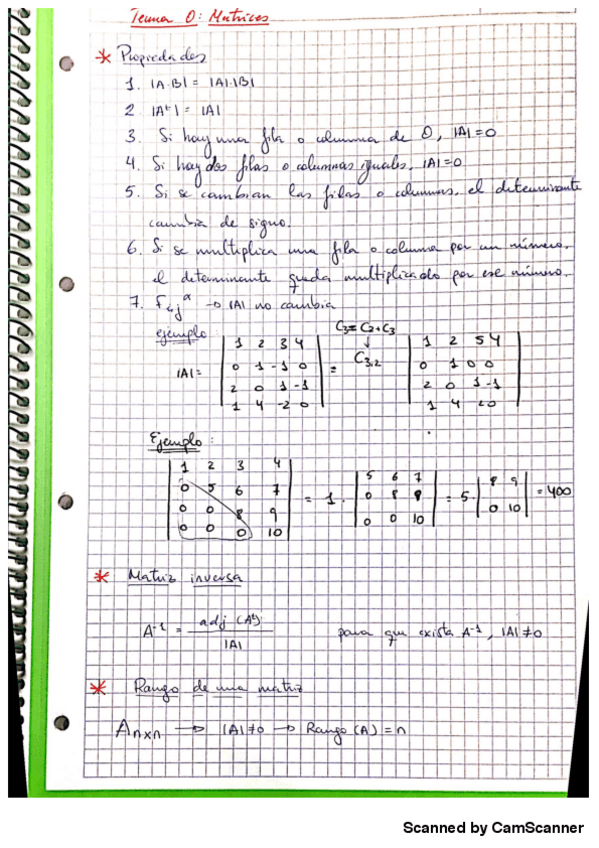 Tema 0: Matrices
* Propiedades
1. |A·B| = |A|·|B|
2 |Aᵗ| = |A|
3. Si hay una fila o columna de 0, |A|=0
4. Si hay dos filas o columnas iguales, |A|=0
5. Si se cambian las filas o columnas, el determinante
cambia de signo.
6. Si se multiplica una fila o columna por un número,
el determinante queda multiplicado por ese número.
7. → |A| no cambia
ejemplo:
C3 = C2+C3
|A| = | 1 2 3 4 | = ↓ | 1 2 5 4 |
| 0 1 -1 0 | C3,2 | 0 1 0 0 |
| 2 0 1 -1 | | 2 0 1 -1 |
| 1 4 -2 0 | | 1 4 2 0 |
Ejemplo:
| 1 2 3 4 |
| 0 5 6 7 | = 1· | 5 6 7 | = 5· | 8 9 | = 400
| 0 0 8 9 | | 0 8 9 | | 0 10 |
| 0 0 0 10 | | 0 0 10 |
* Matriz inversa
A⁻¹ = adj (Aᵗ) / |A| para que exista A⁻¹, |A| ≠ 0
* Rango de una matriz
Anxn → |A| ≠ 0 → Rango (A) = n
Scanned by CamScanner